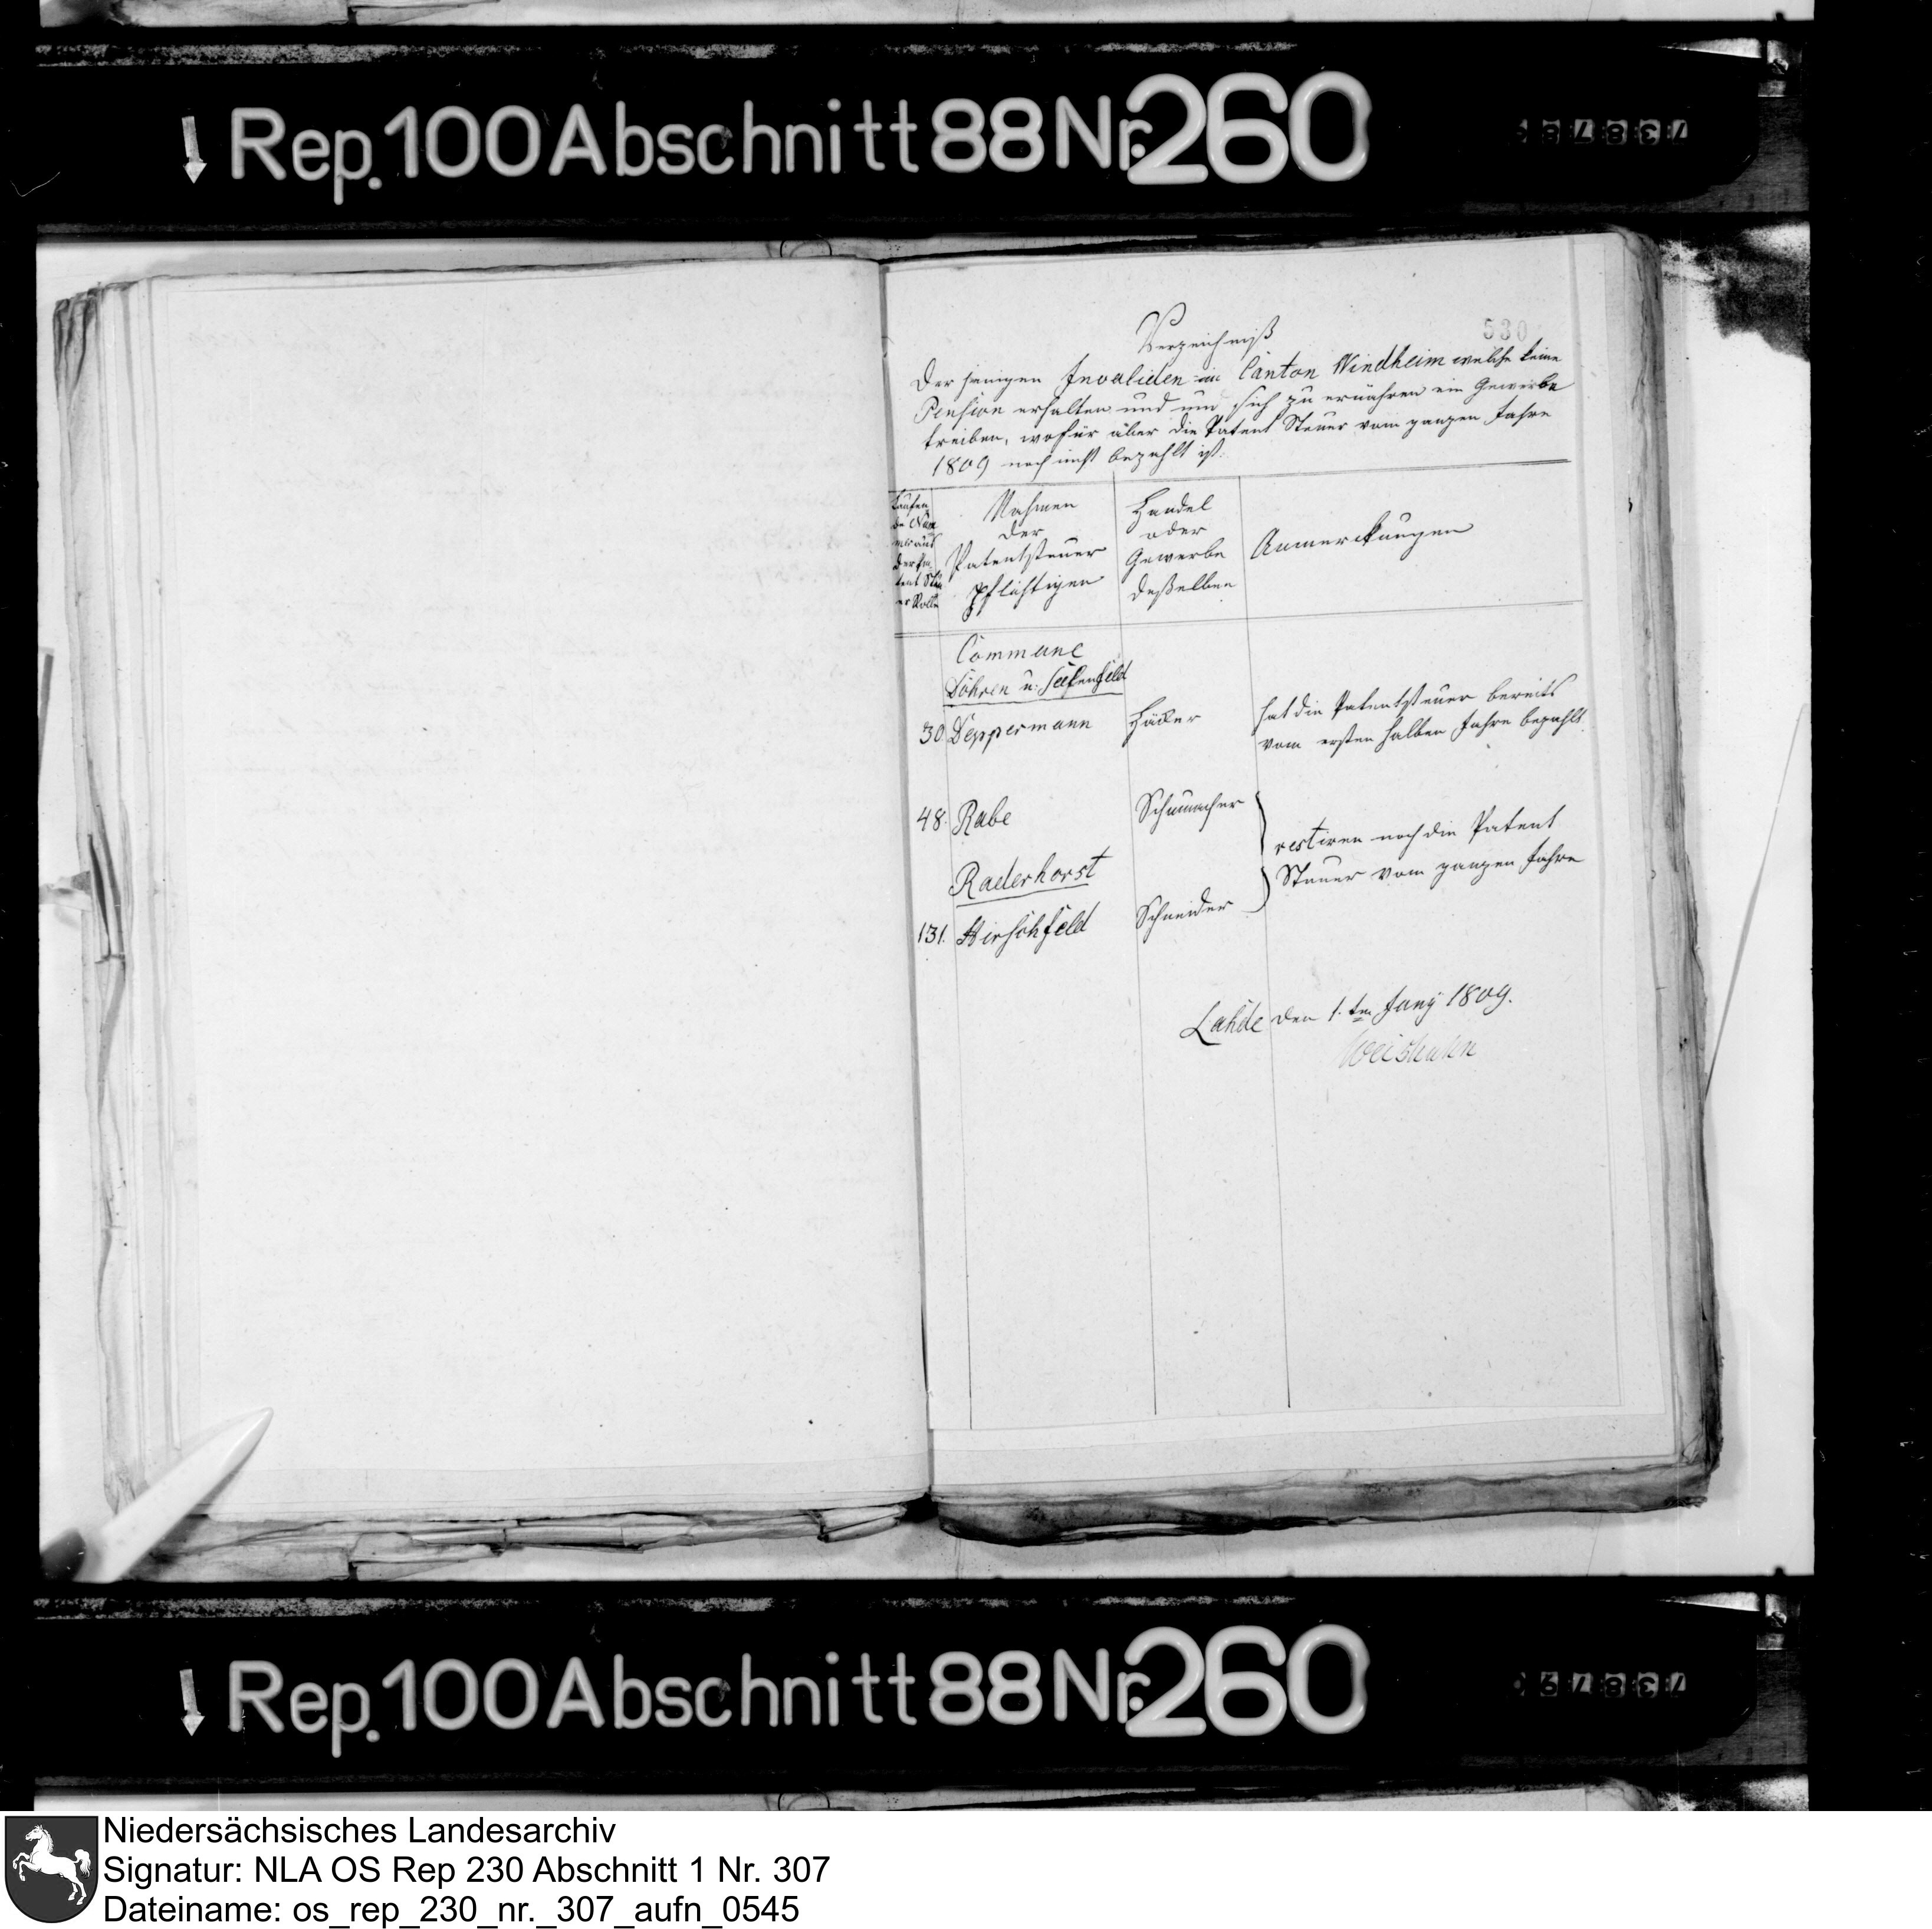 Rep. 100 Abschnitt 88 Nr. 260
530
Verzeichniß
Derjenigen Invaliden im Canton Windheim welche keine
Pension erhalten und um sich zu ernähren ein Gewerbe
treiben, wofür aber die Patent Steuer vom ganzen Jahre
1809 noch nicht bezahlt ist.
Laufen
de Num
mer aus
der Pa
tent Steu
er Rolle
Nahmen
der
Patentsteuer
Pflichtigen
Handel
oder
Gewerbe
deßelben
Anmerkungen
Commune
Döhren u: Seelenfeld
30 Deppermann Häcker hat die Patentsteuer bereits
vom ersten halben Jahre bezahlt.
48. Rabe Schumacher
restiren noch die Patent
Steuer vom ganzen Jahre
Raderhorst
131. Hirschfeld Schneider
Lahde den 1. ten Juny 1809.
Rep. 100 Abschnitt 88 Nr. 260
Niedersächsisches Landesarchiv
Signatur: NLA OS Rep 230 Abschnitt 1 Nr. 307
Dateiname: os_rep_230_nr._307_aufn_0545